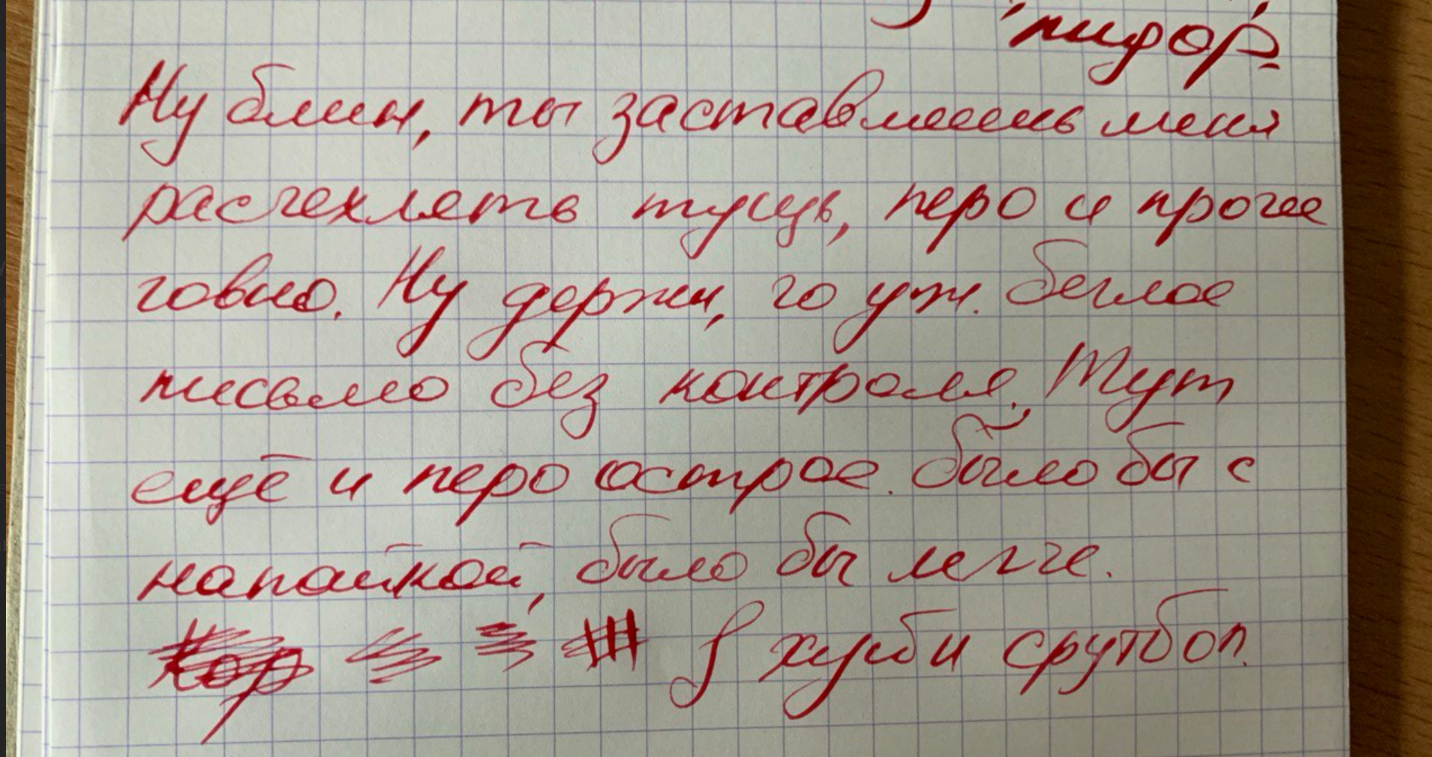 пидор.
Ну блин, ты заставляешь меня
расчехлять тушь, перо и прочее
говно. Ну держи, го уж. Беглое
письмо без контроля. Тут
ещё и перо острое. Было бы с
напайкой, было бы легче.